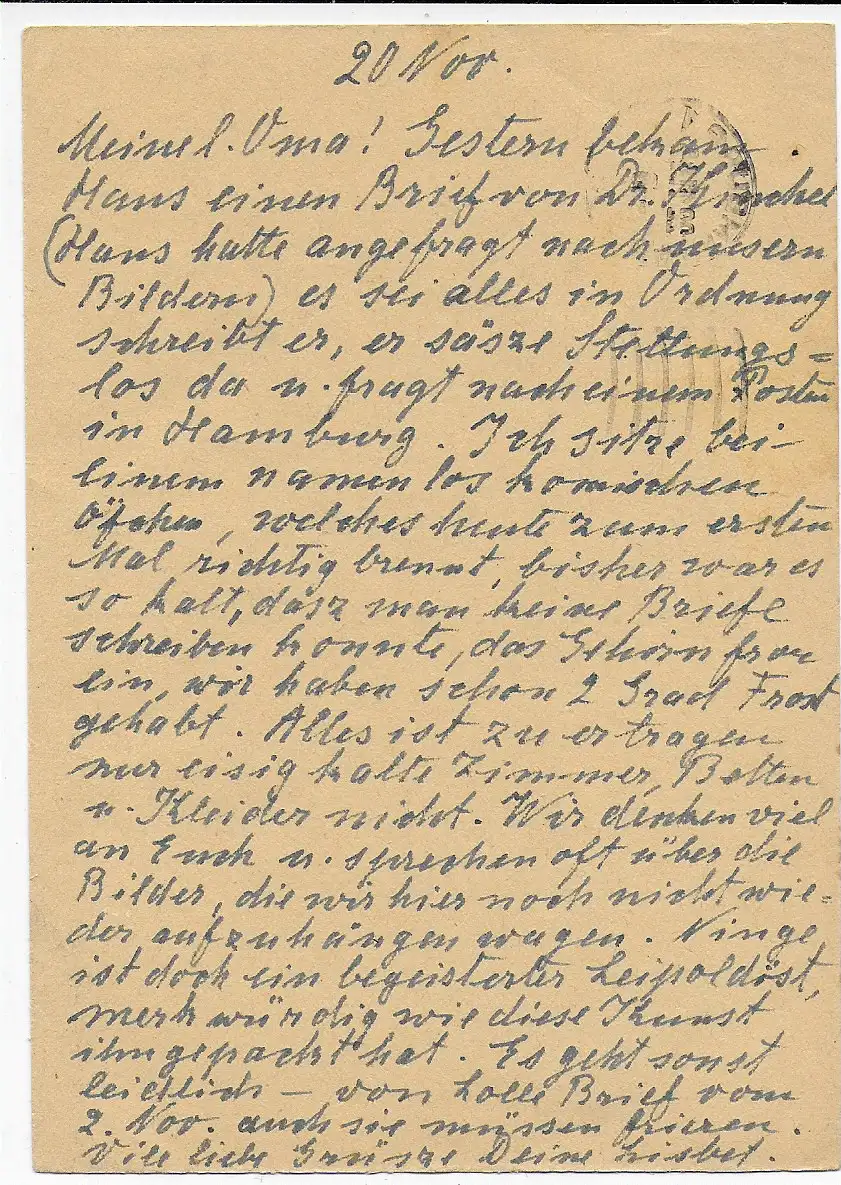 20 Nov.
Meine l. Oma! Gestern bekam
Hans einen Brief von Dr.
(Hans hatte angefragt nach unsern
Bildern) es sei alles in Ordnung
schreibt er, er säsze Stellungs=
los da u. fragt nach einem Posten
in Hamburg. Ich sitze bei
einem namenlos komischen
Öfchen, welches heute zum ersten
Mal richtig brennt, bisher war es
so kalt, dasz man keine Briefe
schreiben konnte, das Gehirn fror
ein, wir haben schon 2 Grad Frost
gehabt. Alles ist zu ertragen
nur eisig kalte Zimmer, Betten
u. Kleider nicht. Wir denken viel
an Euch u. sprechen oft über die
Bilder, die wir hier noch nicht wie=
der aufzuhängen wagen. Ninge
ist doch ein begeisterter Leipoldist,
merkwürdig wie diese Kunst
ihn gepackt hat. Es geht sonst
leidlich – von Lolle Brief vom
2. Nov. auch sie müssen frieren.
Viele liebe Grüsze Deine Lisbet.